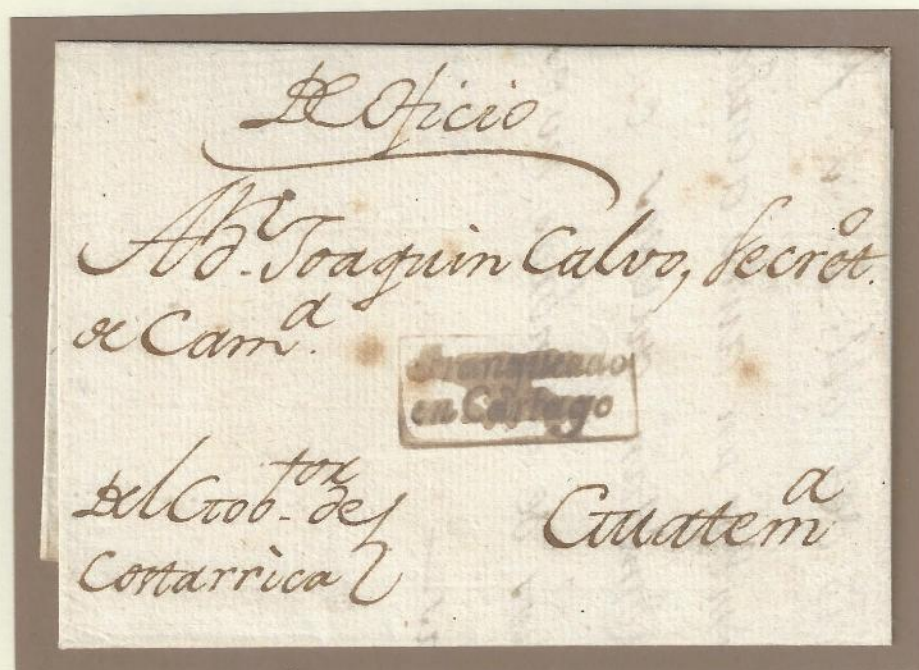 De Oficio
A Dn. Joaquin Calvo, Secret.o
de Cam.a
Franqueado
en Cartago
Del Gob.tor de
Costarrica
Guatem.a